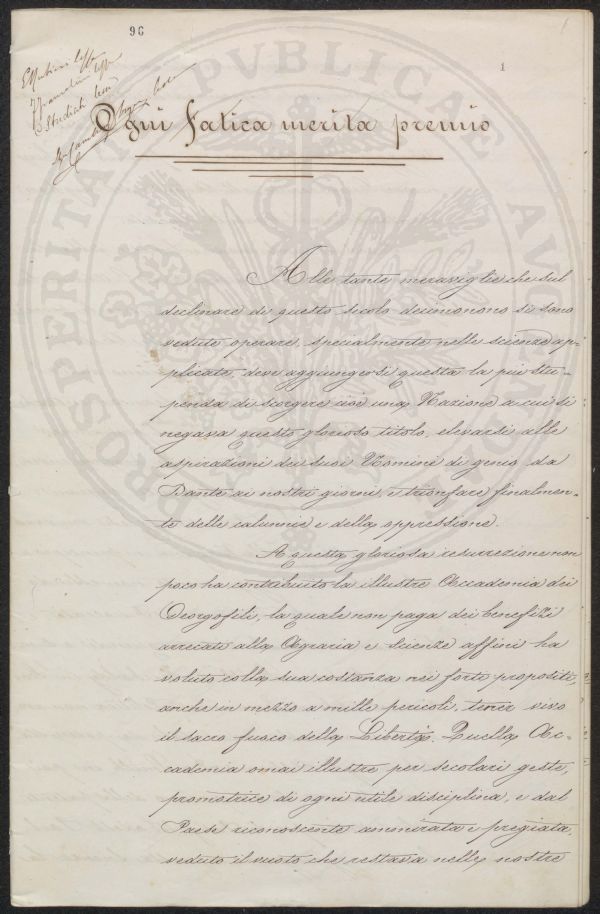 96
1
Ogni fatica merita premio
Alle tante meraviglie che sul
declinare di questo secolo decimonono si sono
vedute operare, specialmente nelle scienze ap-
plicate, deve aggiungersi questa la più stu-
penda di scorgere cioè una Nazione a cui si
negava questo glorioso titolo, elevarsi alle
aspirazioni dei suoi Uomini di genio da
Dante ai nostri giorni, e trionfare finalmen-
te delle calunnie e della oppressione.
A questa gloriosa resurrezione non
poco ha contribuito la illustre Accademia dei
Georgofili, la quale non paga dei benefizi
arrecati alla Agraria e scienze affini ha
voluto colla sua costanza nei forti propositi,
anche in mezzo a mille pericoli, tener vivo
il sacro fuoco della Libertà. Quella Ac-
cademia omai illustre per secolari geste,
promotrice di ogni utile disciplina, e dal
Paese riconoscente ammirata e pregiata,
veduto il vuoto che restava nelle nostre
PROSPERITATI PVBLICAE AVGENDAE